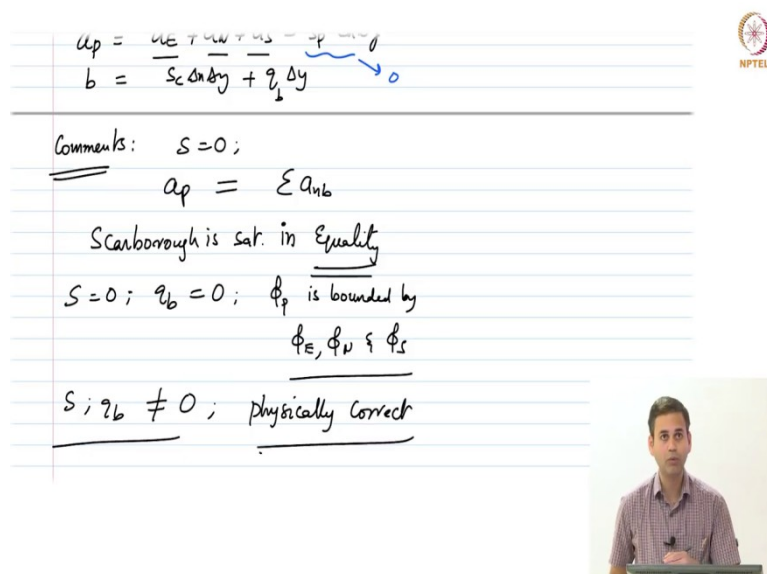 ap = aE + aN + aS - Sp Δx Δy
NPTEL
b = Sc Δx Δy + qb Δy
0
Comments: S = 0 ;
ap = Σ anb
Scarborough is sat. in Equality
S = 0 ; qb = 0 ; ϕp is bounded by
ϕE, ϕN & ϕS
S ; qb ≠ 0 ; physically correct